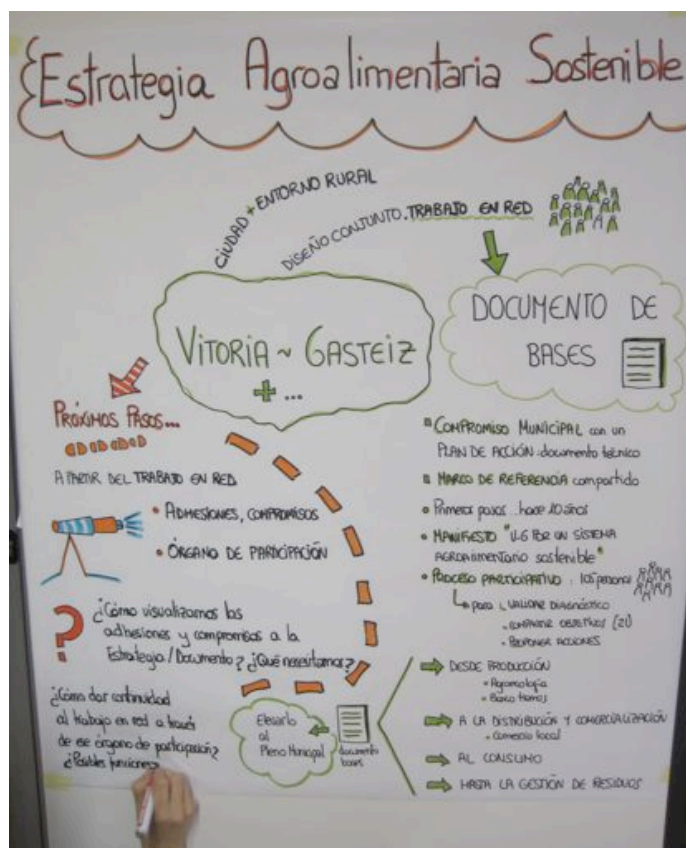 Estrategia Agroalimentaria Sostenible
CIUDAD + ENTORNO RURAL
DISEÑO CONJUNTO. TRABAJO EN RED
VITORIA ~ GASTEIZ
+ ...
DOCUMENTO DE
BASES
PRÓXIMOS PASOS...
A PARTIR DEL TRABAJO EN RED
• ADHESIONES, COMPROMISOS
• ÓRGANO DE PARTICIPACIÓN
?
¿Cómo visualizamos las
adhesiones y compromisos a la
Estrategia / Documento? ¿Qué necesitamos?
¿Cómo dar continuidad
al trabajo en red a través
de ese órgano de participación?
¿Posibles funciones
Elevarlo
al
Pleno Municipal
documento
bases
COMPROMISO MUNICIPAL con un
PLAN DE ACCIÓN: documento técnico
MARCO DE REFERENCIA compartido
• Primeros pasos... hace 10 años
• MANIFIESTO "V-G POR UN SISTEMA
AGROAlimentario sostenible"
• PROCESO PARTICIPATIVO: 105 personas
para VALIDAR DIAGNÓSTICO
• COMPARTIR OBJETIVOS (21)
• PROPONER ACCIONES
DESDE PRODUCCIÓN
• Agroecología
• Banco tierras
A LA DISTRIBUCIÓN Y COMERCIALIZACIÓN
• Comercio local
AL CONSUMO
HASTA LA GESTIÓN DE RESIDUOS